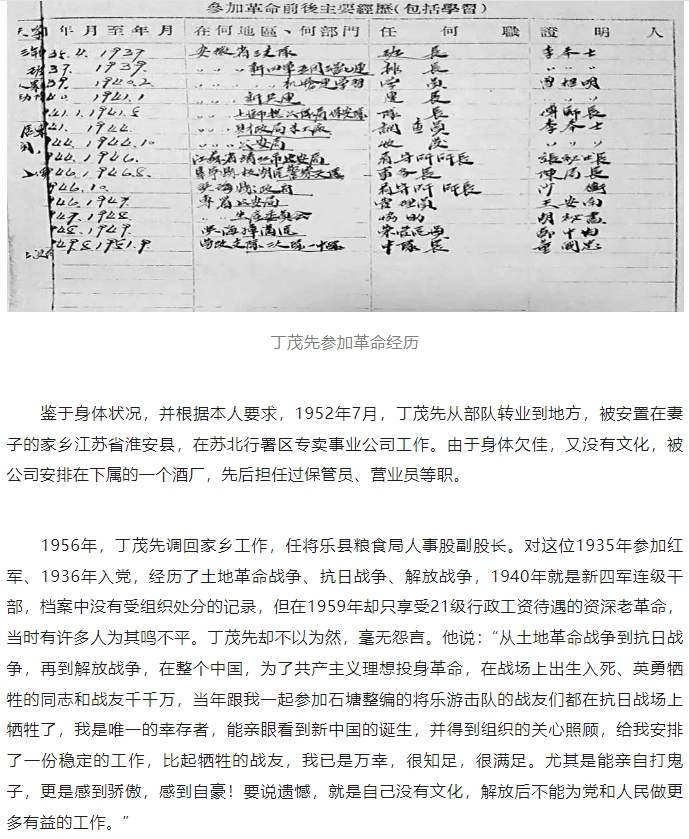 参加革命前後主要經歷(包括學習)
年月至年月 在何地區、何部門 任何職 證明人
35.4. 1937 安徽省 隊 班長 李本士
37. 1939 新四軍五団 連 排長
39. 1940.2 學習 學員 曾昭明
1941.1 新兵連 連長
41.1. 1941.8 隊長 傅師長
41. 1942 財政局 調查員 李本士
44. 1944.10 公安局
1946. 江蘇省 公安局 看守所所長
946. 1946.8. 事務長 陳局長
946.10. 濱海縣政府 看守所所長
946. 1947. 公安局 管理員 王安南
947. 1948. 生產委員会 協助 明秘書
48. 1949. 濱海
49.8. 1951.9 中隊長
丁茂先参加革命经历
鉴于身体状况，并根据本人要求，1952年7月，丁茂先从部队转业到地方，被安置在妻
子的家乡江苏省淮安县，在苏北行署区专卖事业公司工作。由于身体欠佳，又没有文化，被
公司安排在下属的一个酒厂，先后担任过保管员、营业员等职。
1956年，丁茂先调回家乡工作，任将乐县粮食局人事股副股长。对这位1935年参加红
军、1936年入党，经历了土地革命战争、抗日战争、解放战争，1940年就是新四军连级干
部，档案中没有受组织处分的记录，但在1959年却只享受21级行政工资待遇的资深老革命，
当时有许多人为其鸣不平。丁茂先却不以为然，毫无怨言。他说：“从土地革命战争到抗日战
争，再到解放战争，在整个中国，为了共产主义理想投身革命，在战场上出生入死、英勇牺
牲的同志和战友千千万，当年跟我一起参加石塘整编的将乐游击队的战友们都在抗日战场上
牺牲了，我是唯一的幸存者，能亲眼看到新中国的诞生，并得到组织的关心照顾，给我安排
了一份稳定的工作，比起牺牲的战友，我已是万幸，很知足，很满足。尤其是能亲自打鬼
子，更是感到骄傲，感到自豪！要说遗憾，就是自己没有文化，解放后不能为党和人民做更
多有益的工作。”